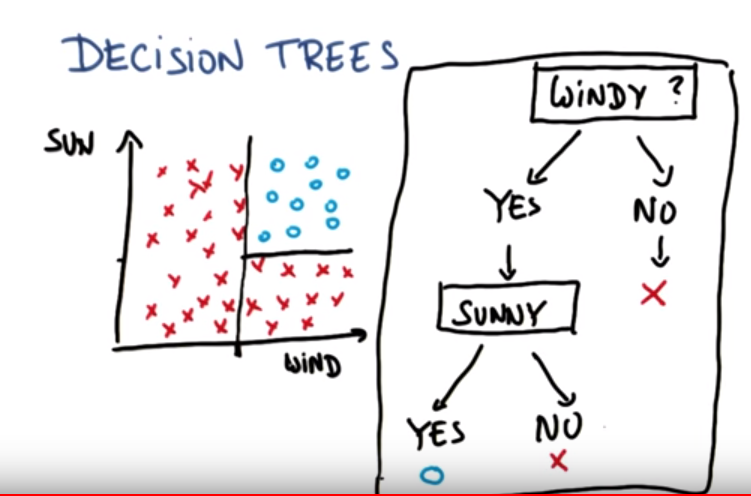 DECISION TREES
SUN
WIND
WINDY ?
YES NO
SUNNY
YES NO